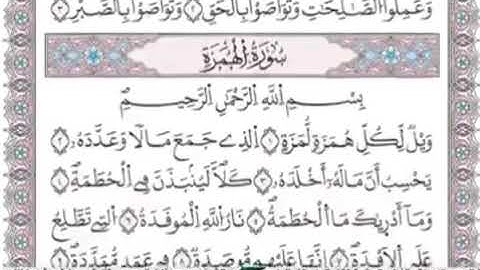 وَعَمِلُوا۟ الصَّٰلِحَٰتِ وَتَوَاصَوْا۟ بِالْحَقِّ ٢ وَتَوَاصَوْا۟ بِالصَّبْرِ ٣
سُورَةُ الْهُمَزَةِ
بِسْمِ اللَّهِ الرَّحْمَٰنِ الرَّحِيمِ
وَيْلٌ لِّكُلِّ هُمَزَةٍ لُّمَزَةٍ ١ الذِے جَمَعَ مَالًا وَعَدَّدَهُۥ ٢
يَحْسِبُ أَنَّ مَالَهُۥٓ أَخْلَدَهُۥ ٣ كَلَّا لَيُنۢبَذَنَّ فِے الْحُطَمَةِ ٤
وَمَآ أَدْر۪يٰكَ مَا اَ۬لْحُطَمَةُ ٥ نَارُ اللَّهِ الْمُوقَدَةُ ٦ اُ۬لتِے تَطَّلِعُ
عَلَى اَ۬لَافْـِٕدَةِ ٧ إِنَّهَا عَلَيْهِم مُّوصَدَةٌ ٨ فِے عَمَدٍ مُّمَدَّدَةٍ ٩